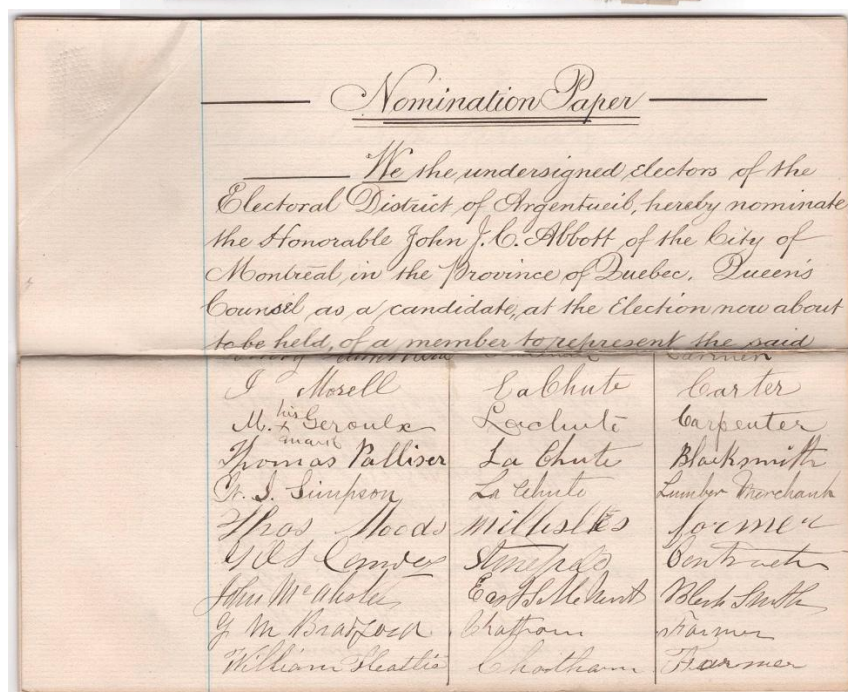 Nomination Paper
We the undersigned, electors of the
Electoral District of Argentueil, hereby nominate
the Honorable John J. C. Abbott, of the City of
Montreal, in the Province of Quebec, Queen's
Counsel, as a candidate, at the Election now about
to be held, of a member to represent the said
Morell LaChute Carter
M. his x mark Geroulx Lachute Carpenter
Thomas Palliser La Chute Blacksmith
W. J. Simpson La Chute Lumber Merchant
Thos Moods former
Contractor
John Black Smith
G M Bradford Chathom Farmer
William Chatham Farmer